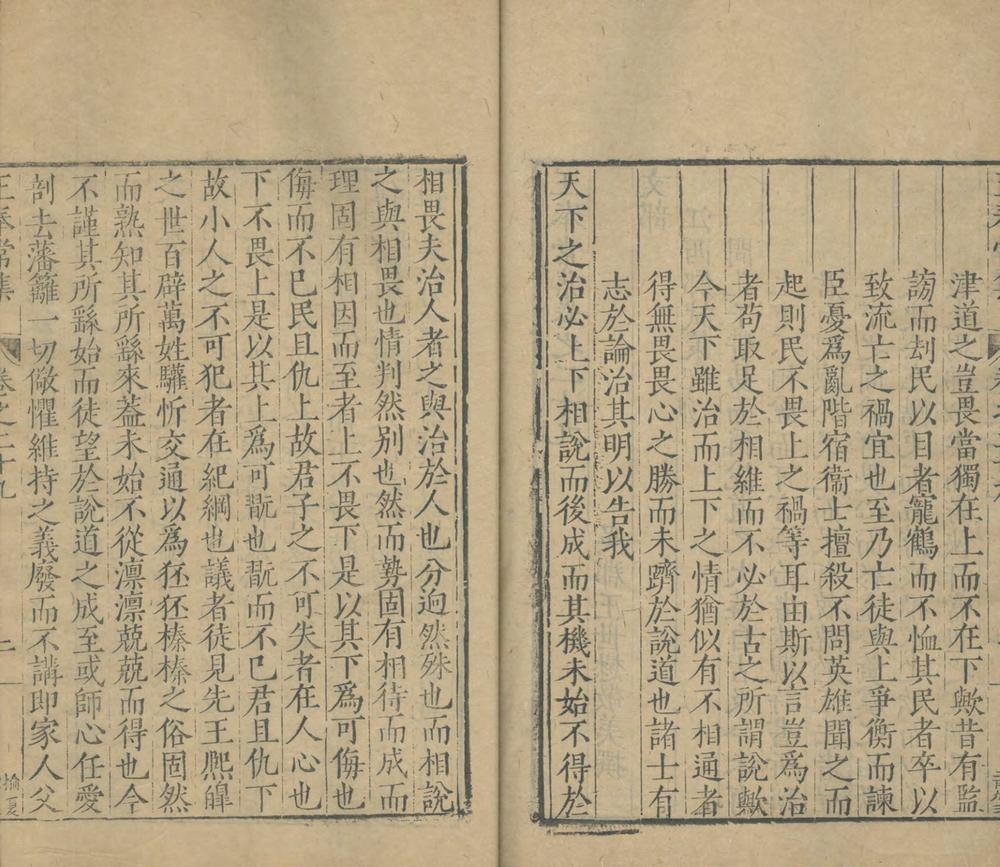 津道之豈畏當獨在上而不在下歟昔有監
謗而刦民以目者寵鶴而不恤其民者卒以
致流亡之禍宜也至乃亡徒與上爭衡而諫
臣憂爲亂階宿衞士擅殺不問英雄聞之而
起則民不畏上之禍等耳由斯以言豈爲治
者茍取足於相維而不必於古之所謂說歟
今天下雖治而上下之情猶似有不相通者
得無畏畏心之勝而未躋於說道也諸士有
志於論治其明以告我
天下之治必上下相說而後成而其機未始不得於
相畏夫治人者之與治於人也分逈然殊也而相說
之與相畏也情判然別也然而勢固有相待而成而
理固有相因而至者上不畏下是以其下爲可侮也
侮而不已民且仇上故君子之不可失者在人心也
下不畏上是以其上爲可翫也翫而不已君且仇下
故小人之不可犯者在紀綱也議者徒見先王熈皥
之世百辟萬姓驩忻交通以爲狉狉榛榛之俗固然
而熟知其所繇來葢未始不從凛凛兢兢而得也今
不謹其所繇始而徒望於說道之成至或師心任愛
剖去藩籬一切儆懼維持之義廢而不講即家人父
王奉常集 卷之二十九